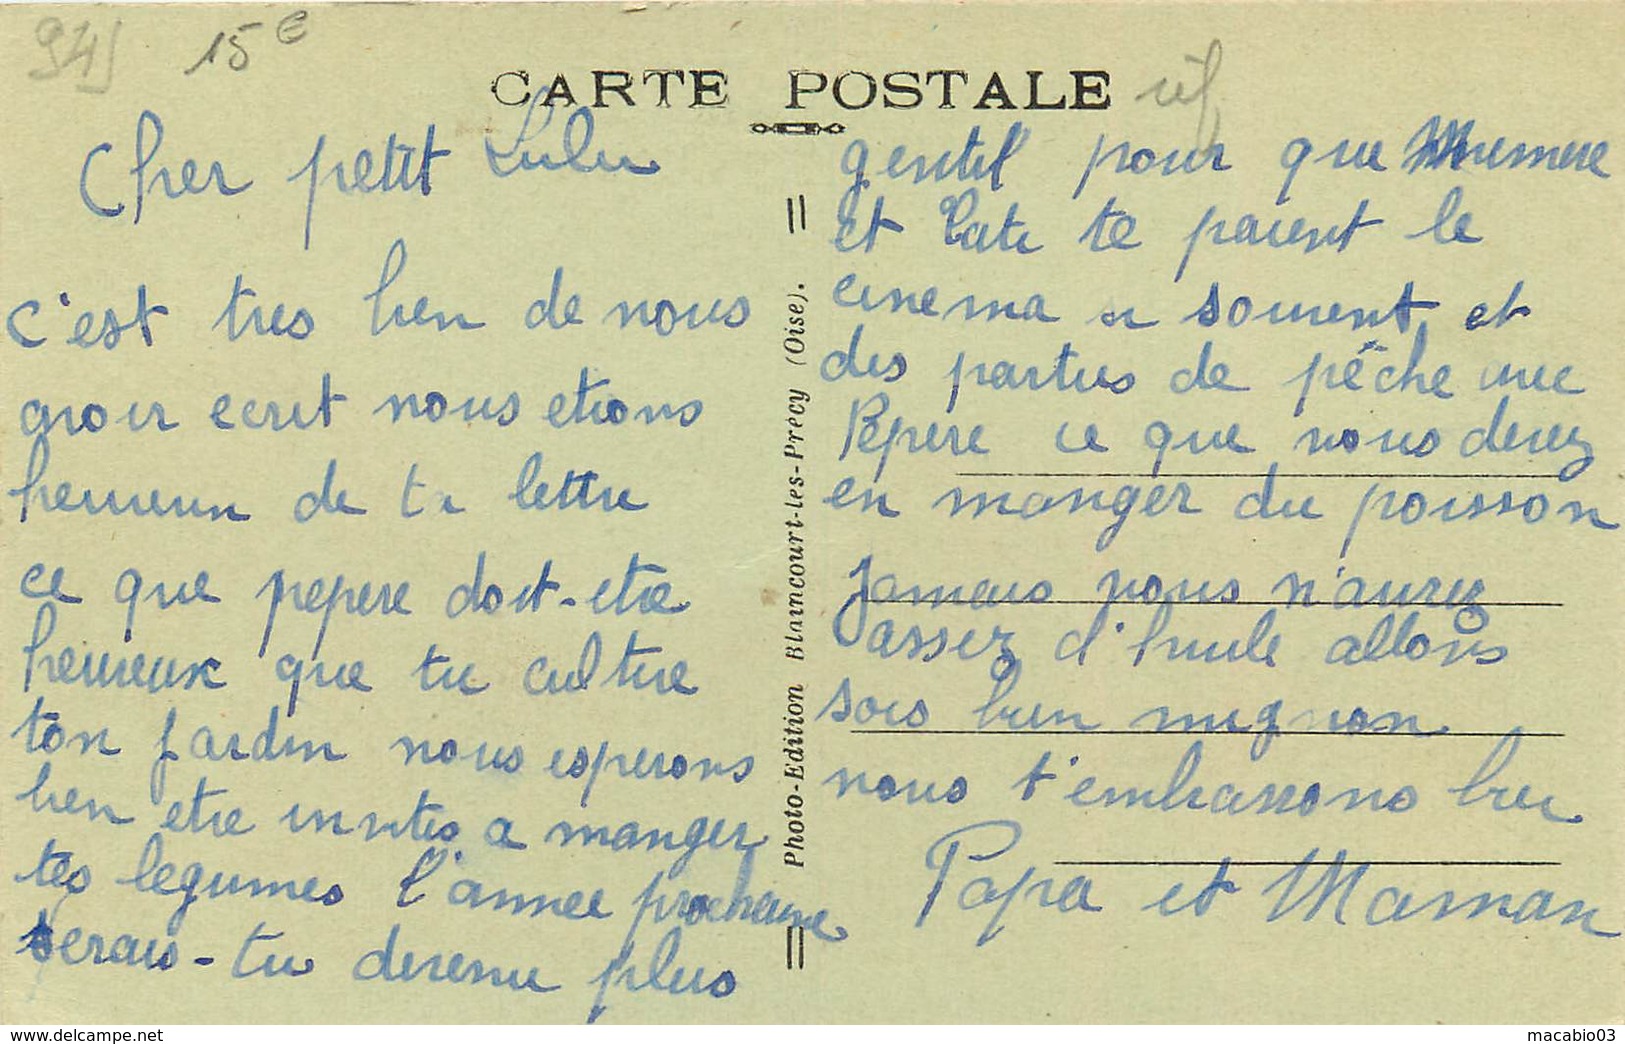 94)
15€
CARTE POSTALE
Cher petit Lulu
c'est tres bien de nous
avoir ecrit nous etions
heureux de ta lettre
ce que pepere doit-etre
heureux que tu cultive
ton jardin nous esperons
bien etre invités a manger
tes legumes l'année prochaine
serais-tu devenu plus
gentil pour que Memere
et Tata te paient le
cinema si souvent et
des parties de pêche avec
Pepere ce que vous devez
en manger du poisson
Jamais vous n'aurez
assez d'huile allons
sois bien mignon
nous t'embrassons bien
Papa et Maman
Photo-Edition Blaincourt-les-Précy (Oise).
www.delcampe.net
macabio03